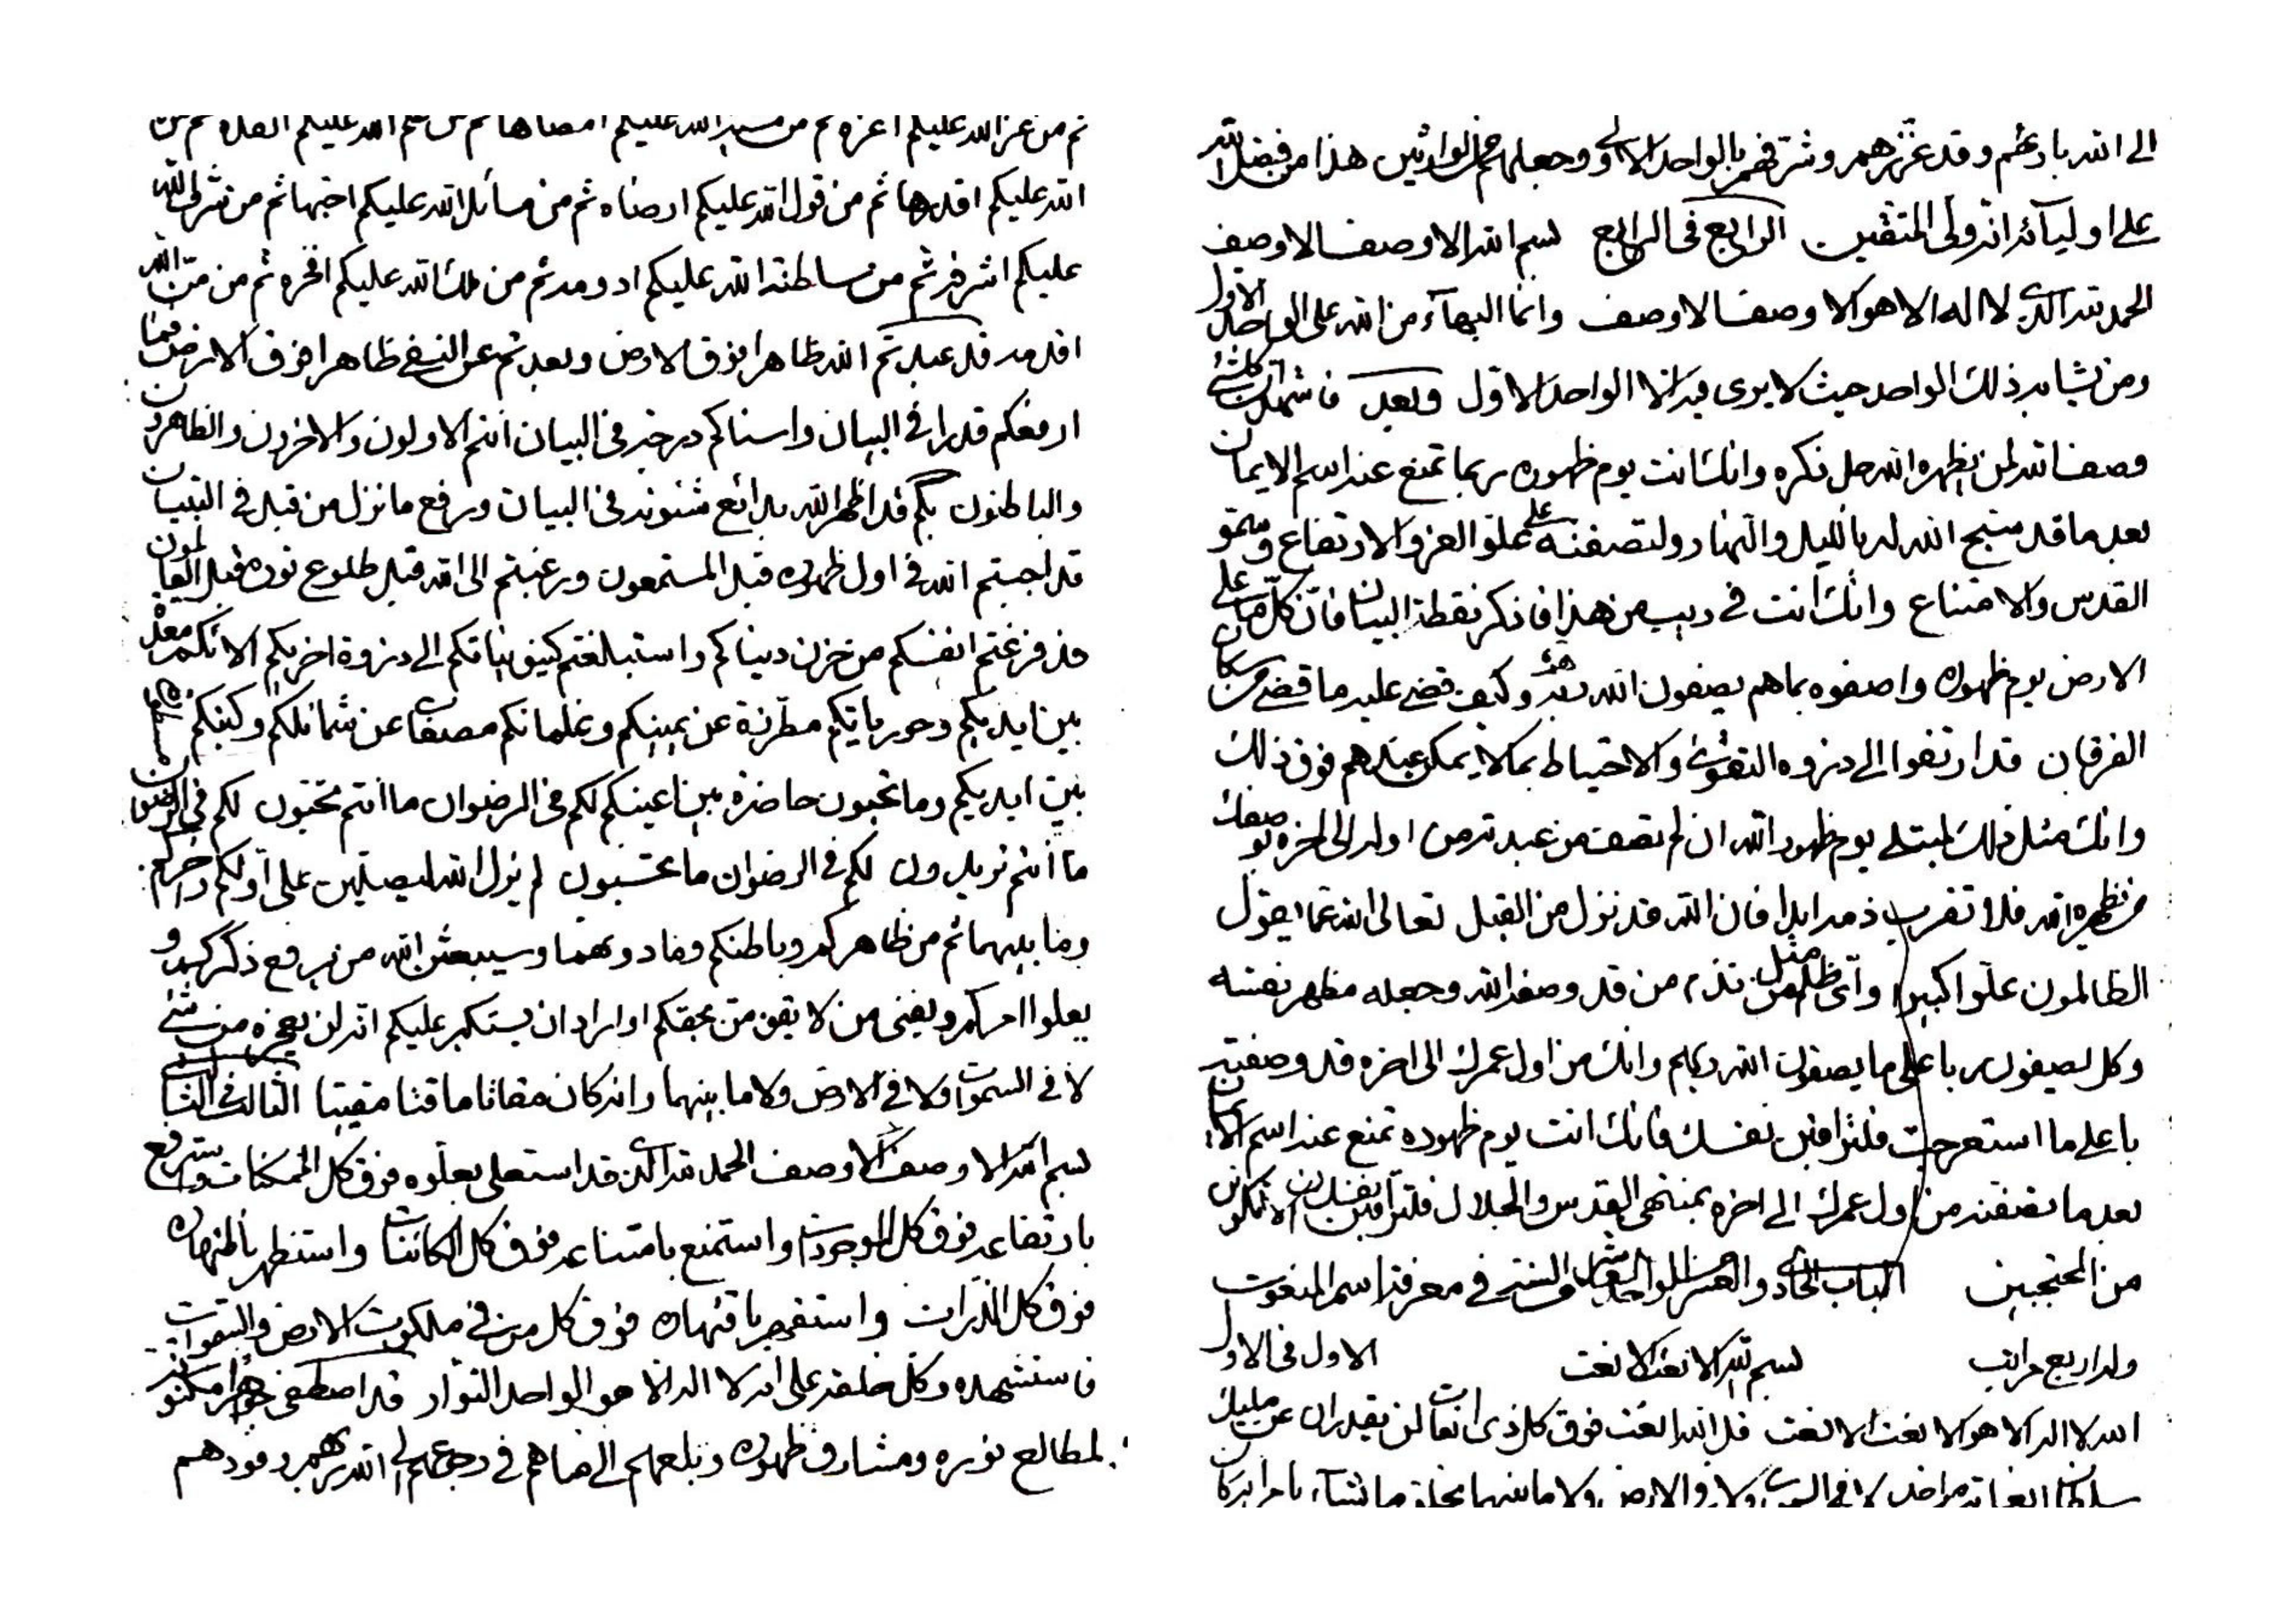 ثم من عز الله عليكم اعزه ثم من مشية الله عليكم امضاها ثم من علم الله عليكم انفذه ثم من
الله عليكم اقدرها ثم من قول الله عليكم ارضاه ثم من مسائل الله عليكم احبها ثم من شرف الله
عليكم اشرفه ثم من سلطنة الله عليكم ادومه ثم من ملك الله عليكم افخره ثم من من الله
اقدمه قد عبدتم الله ظاهرا فوق الارض وبعدتم عن النفي ظاهرا فوق الارض فما
ارفعكم قدرا في البيان واسناكم درجة في البيان انتم الاولون والاخرون والظاهرون
والباطنون بكم قد اظهر الله بدائع شئونه في البيان ورفع ما نزل من قبل في التبيان
قد اجبتم الله في اول ظهوره قبل المستمعون ورغبتم الى الله قبل طلوع نوره قبل العالمون
قد فرغتم انفسكم من حزن دنياكم واستبلغتم كينونياتكم الى ذروة اخريكم الائكم معدة
بين ايديكم وحورياتكم مطرزة عن يمينكم وغلمانكم مصفات عن شمائلكم وكتبكم
بين ايديكم وما تحبون حاضرة بين اعينكم لكم في الرضوان ما انتم تحبون لكم في الرضوان
ما انتم تريدون لكم في الرضوان ما تحتسبون لم يزل الله ليصلين على اولكم واخركم
وما بينهما ثم من ظاهركم وباطنكم وما دونهما وسيبعثن الله من يرفع ذكركم و
يعلوا امركم ويفني من لا يقومن بحقكم او اراد ان يستكبر عليكم انه لن يعجزه من شئ
لا في السموات ولا في الارض ولا ما بينهما وانه كان مقاتا ماقتا مقيتا الثالث في الثالث
بسم الله الاوصف الاوصف الحمد لله الذي قد استعلى بعلوه فوق كل الممكنات واسترفع
بارتفاعه فوق كل الموجودات واستمنع بامتناعه فوق كل الكائنات واستظهر باظهاره
فوق كل الذرات واستقهر باقهاره فوق كل من في ملكوت الارض والسموات
فاستشهده وكل خلقه على انه لا اله الا هو الواحد النوار قد اصطفى جواهر مكنونة
لمطالع نوره ومشارق ظهوره وبلغهم الى ما هم في رجوعهم الى الله ربهم وفودهم
الى الله بارئهم وقد عززهم وشرفهم بالواحد الاول وجعلهم الوارثين هذا من فضل الله
على اوليائه انه ولى المتقين الرابع في الرابع بسم الله الاوصف الاوصف
الحمد لله الذي لا اله الا هو الاوصف الاوصف وانما البهاء من الله على الواحد الاول
ومن يشابه ذلك الواحد حيث لا يرى فيه الا الواحد الاول وبعد فاشهد ان كلشئ
وصف الله لمن يظهره الله جل ذكره وانك انت يوم ظهوره ربما تمنع عنه اسم الايمان
بعد ما قد سبح الله له بالليل والنهار ولتصفنه على علو العز والارتفاع وسمو
القدس والامتناع وانك انت في ريب من هذا فاذكر نقطة البيان فان كل من على
الارض يوم ظهوره واصفوه بما هم يصفون الله ربه وكيف قضى عليه ما قضى من سكان
الفرقان قد ارتفوا الى ذروه التقوى والاحتياط بما لا يمكن عندهم فوق ذلك
وانك مثل ذلك لمبتلى يوم ظهور الله ان لم تصف من عبد لله من اوله الى اخره يوصفك
من يظهره الله فلا تقرب ذمه ابدا فان الله قد نزل من القبل تعالى الله عما يقول
الظالمون علوا كبيرا واى ظلم مثل من تذم من قد وصفه الله وجعله مظهر نفسه
وكل يصفون باعلى ما يصفون الله ربكم وانك من اول عمرك الى اخره قد وصفته
باعلى ما استعرجت فلتراقبن نفسك فانك انت يوم ظهوره تمنع عنه اسم الايمان
بعد ما تصفنه من اول عمرك الى اخره بمنتهى القدس والجلال فلتراقبن نفسك ان لا تكونن
من المحتجبين الباب الحادى والعشر من الواحد العاشر والستة في معرفة اسم المنعوت
وله اربع مراتب بسم الله الانعت الانعت الاول في الاول
الله لا اله الا هو الانعت الانعت قل الله انعت فوق كل ذى انعات لن يقدر ان عن مليك
سلطان انعاته من احد لا في السموات ولا في الارض ولا ما بينهما يخلق ما يشاء بامره انه كان